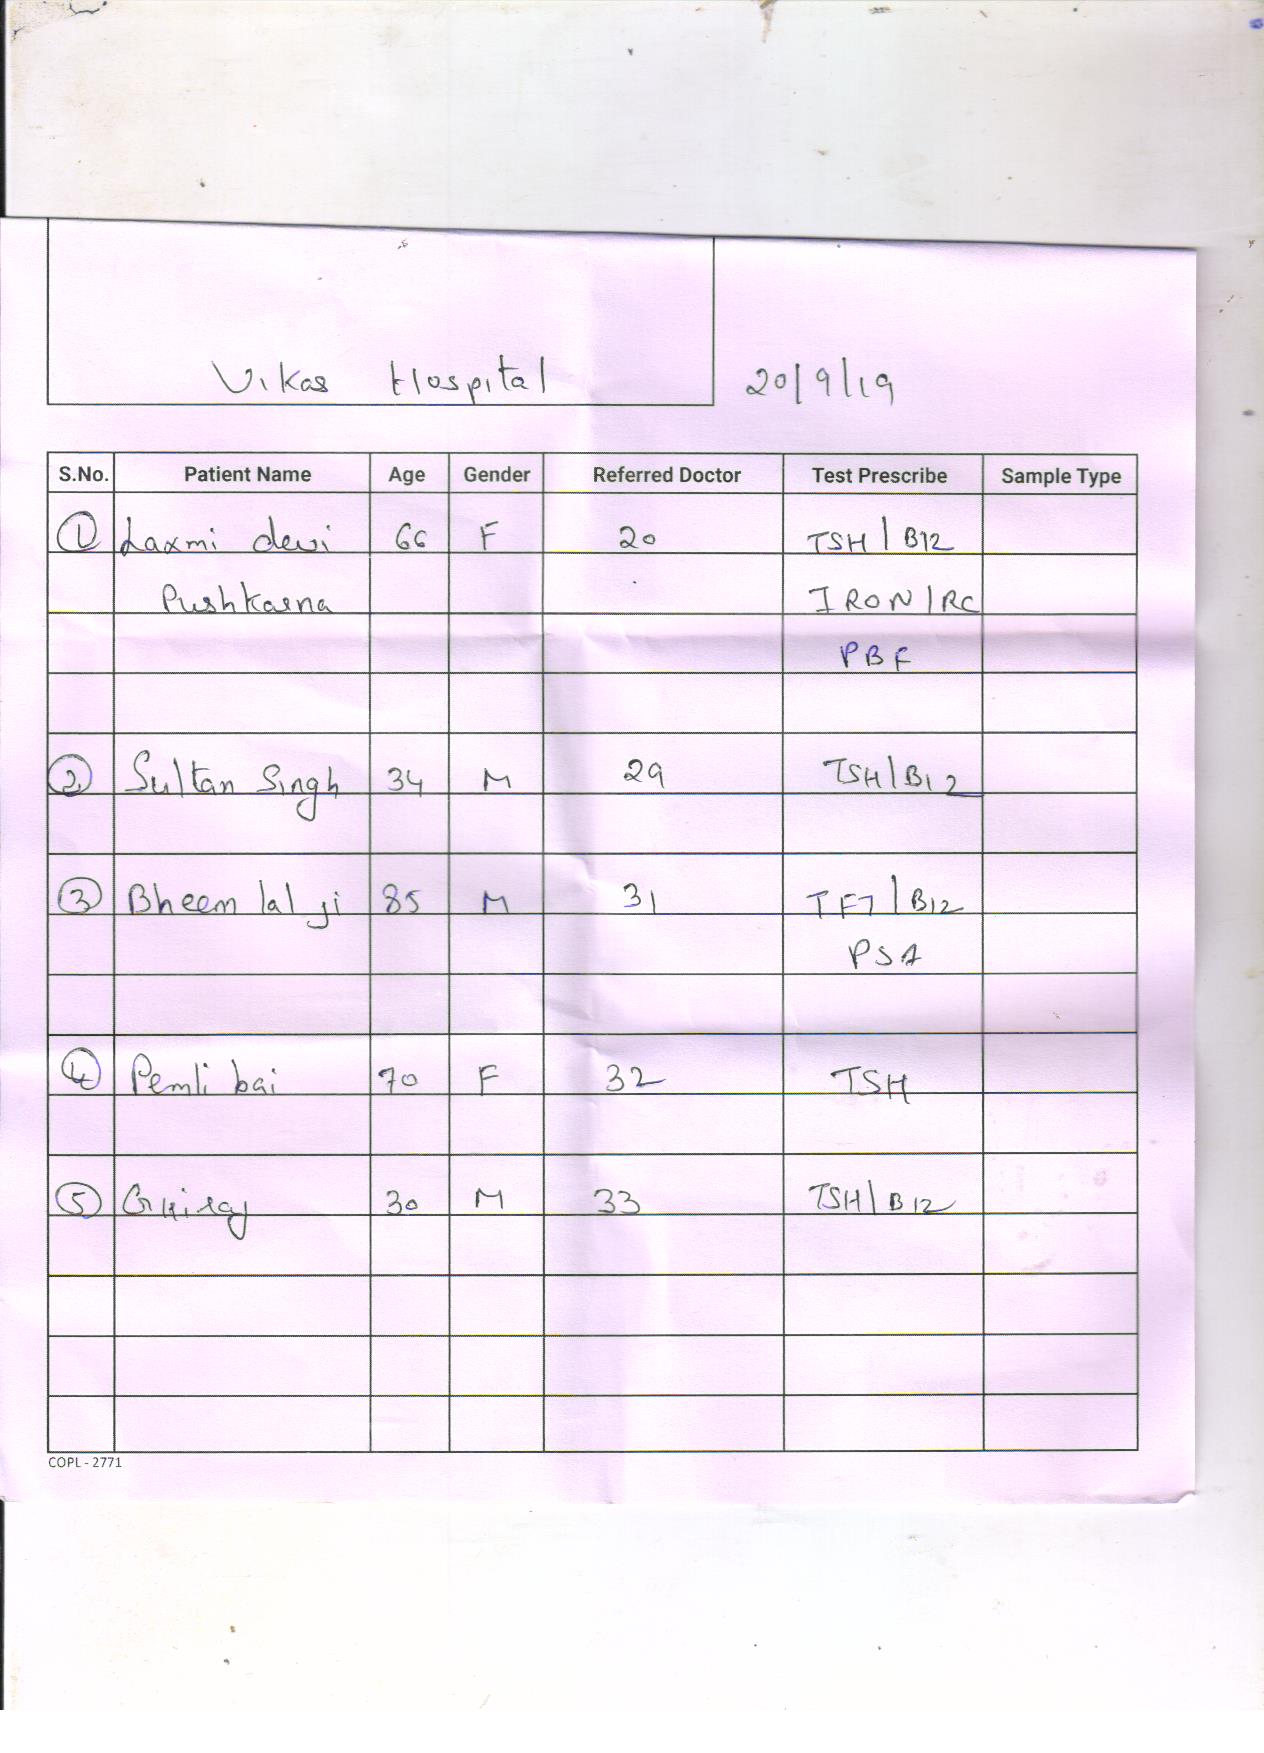 Vikas Hospital 20/9/19
S.No. Patient Name Age Gender Referred Doctor Test Prescribe Sample Type
1 Laxmi devi 66 F 20 TSH/B12
Pushkarna IRON/RC
PBF
2 Sultan Singh 34 M 29 TSH/B12
3 Bheem lal ji 85 M 31 TFT/B12
PSA
4 Pemli bai 70 F 32 TSH
5 30 M 33 TSH/B12
COPL - 2771